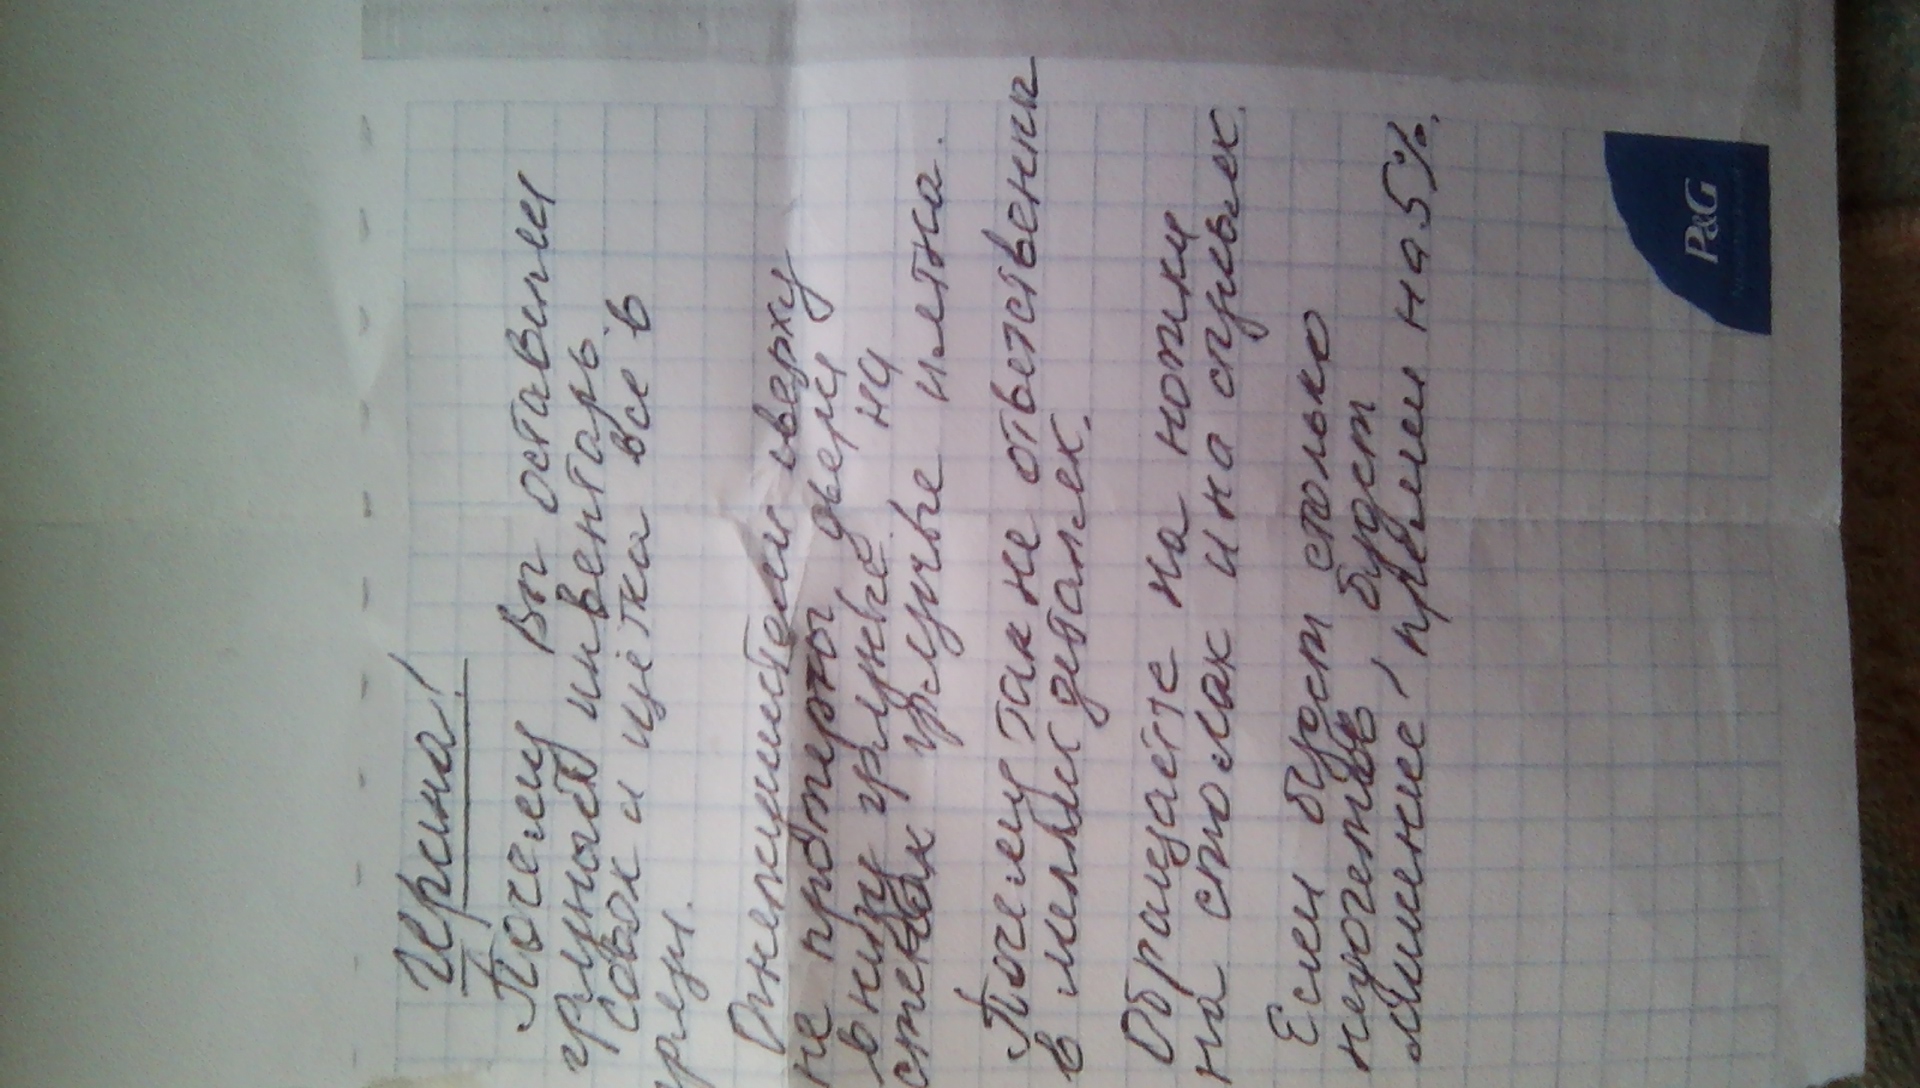 Ирина!
Почему Вы оставили
грязный инвентарь
совок и щётка все в
грязи.
Огнетушители сверху
не протерты двери
внизу грязные на
стенах грязные пятна.
Почему так не ответственны
в мелких деталях.
Обращайте на ножки
на столах и на стульях.
Если будет столько
недочетов, будет
лишение премии на 5%.
P&G